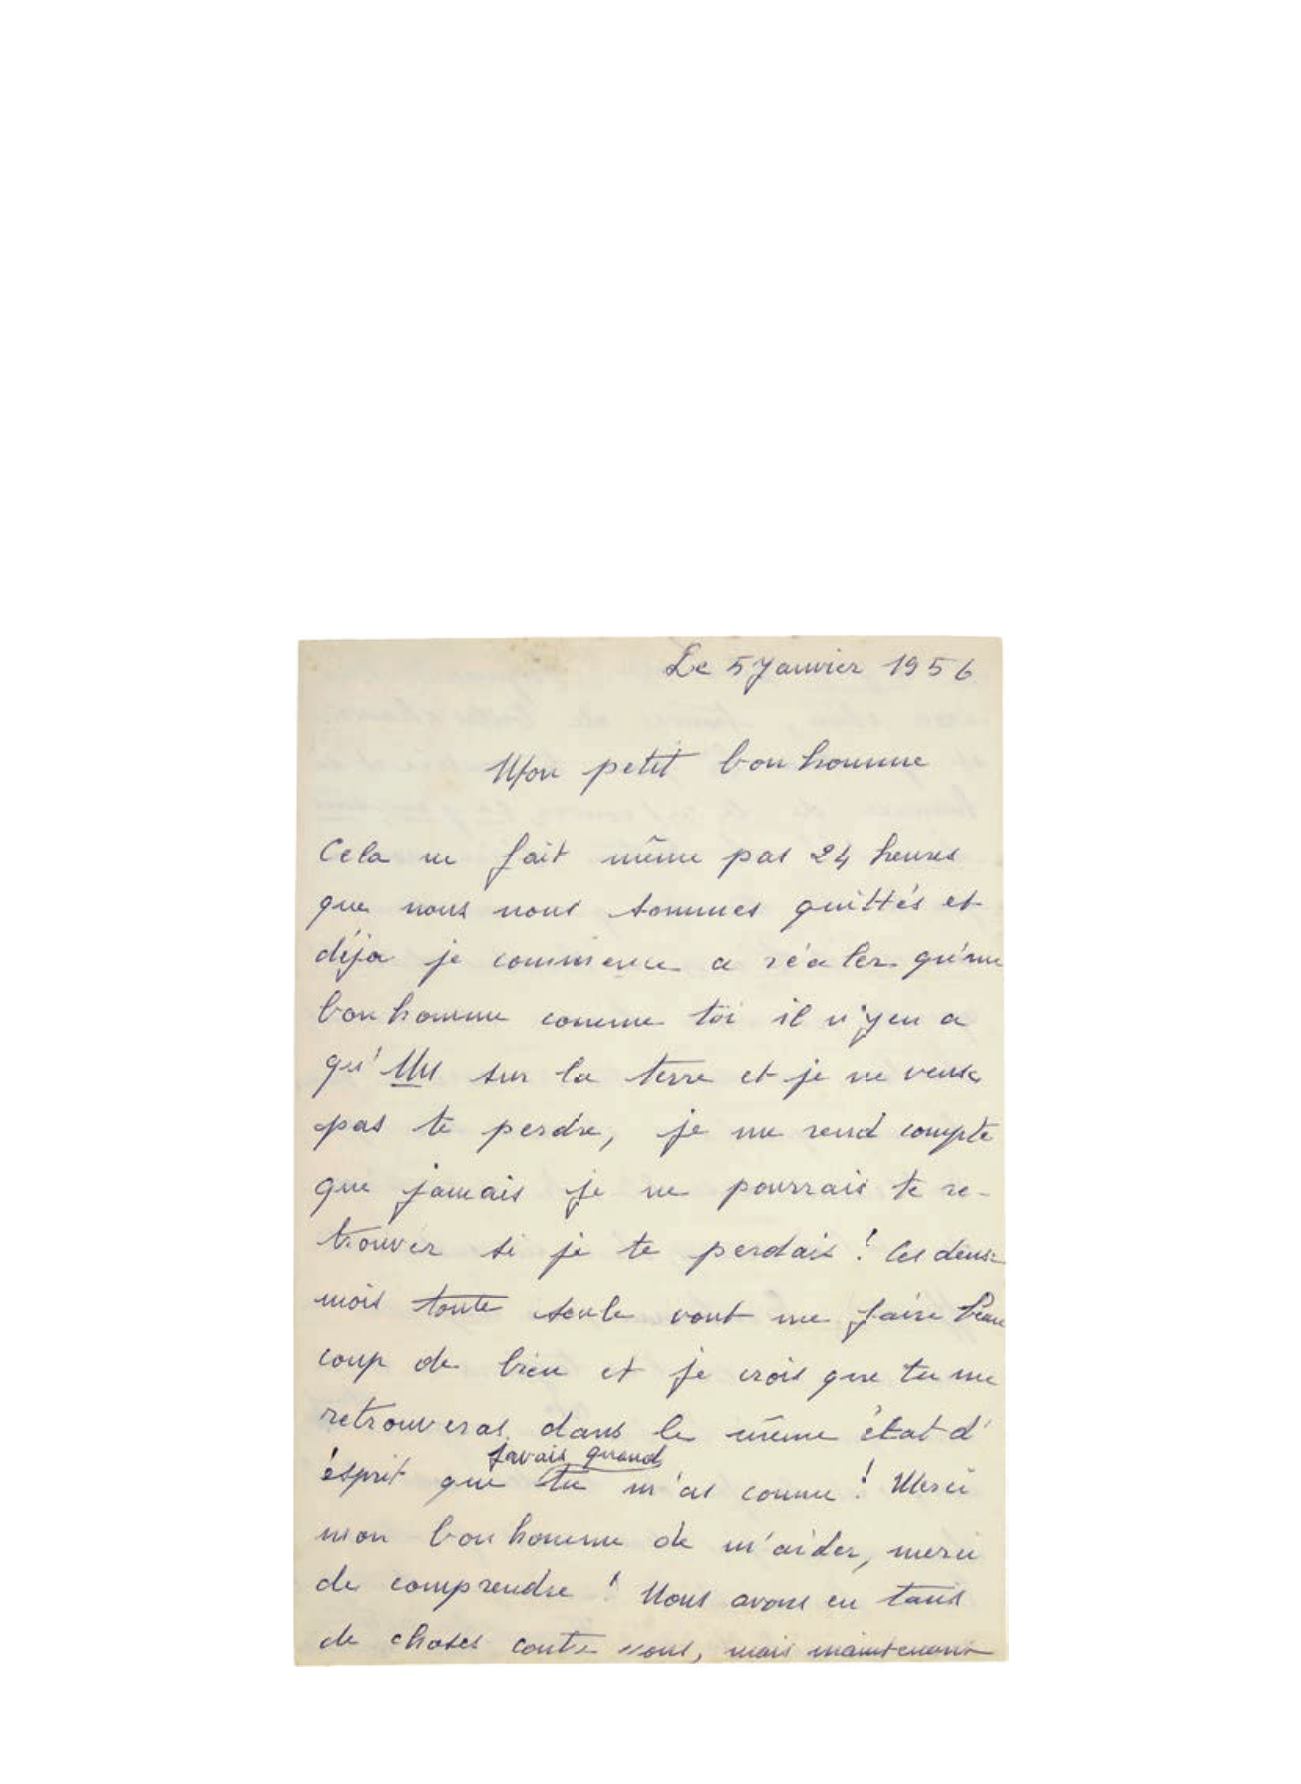 Le 5 Janvier 1956
Mon petit bonhomme
Cela ne fait même pas 24 heures
que nous nous sommes quittés et
déja je commence a réaler qu'un
bonhomme comme toi il n'y en a
qu'Un sur la terre et je ne veux
pas te perdre, je me rend compte
que jamais je ne pourrais te re-
trouver si je te perdais ! Ces deux
mois toute seule vont me faire beau
coup de bien et je crois que tu me
retrouveras dans le même état d'
j'avais quand
ésprit que tu m'as connu ! Merci
mon bonhomme de m'aider, merci
de comprendre ! Nous avons eu tans
de choses contre nous, mais maintenant